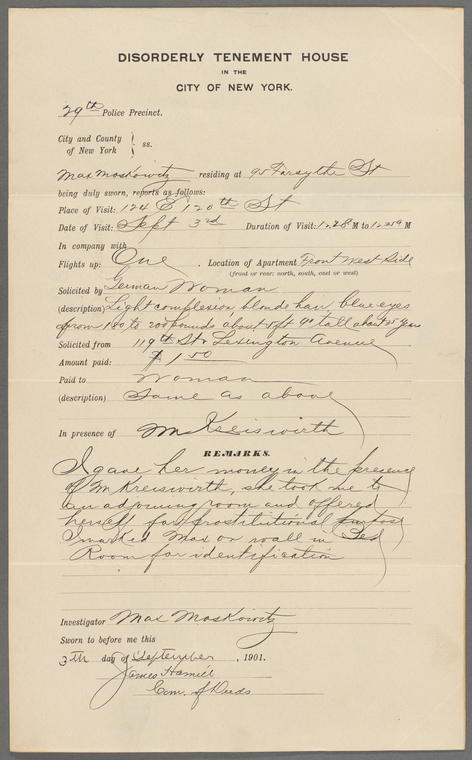 DISORDERLY TENEMENT HOUSE
IN THE
CITY OF NEW YORK.
29th Police Precinct.
City and County
of New York } ss.
Max Moskowitz residing at 95 Forsythe St
being duly sworn, reports as follows:
Place of Visit: 124 E 120th St
Date of Visit: Sept 3rd Duration of Visit: 12.28 M to 12.59 M
In company with
Flights up: One . Location of Apartment Front West Side
(front or rear: north, south, east or west)
Solicited by German Woman
(description) Light complexion, blonde hair, blue eyes
from 180 to 200 pounds about 5ft 9" tall about 25 years
Solicited from 119th St & Lexington Avenue
Amount paid: $1.50
Paid to Woman
(description) Same as above
In presence of M Kreiswirth
REMARKS.
I gave her money in the presence
of M Kreiswirth, she took me to
an adjoining room and offered
herself for prostitutional purpose
I marked Max on wall in Bed
Room for identification
Investigator Max Moskowitz
Sworn to before me this
3th day of September , 1901.
James Hamill
Com. of Deeds